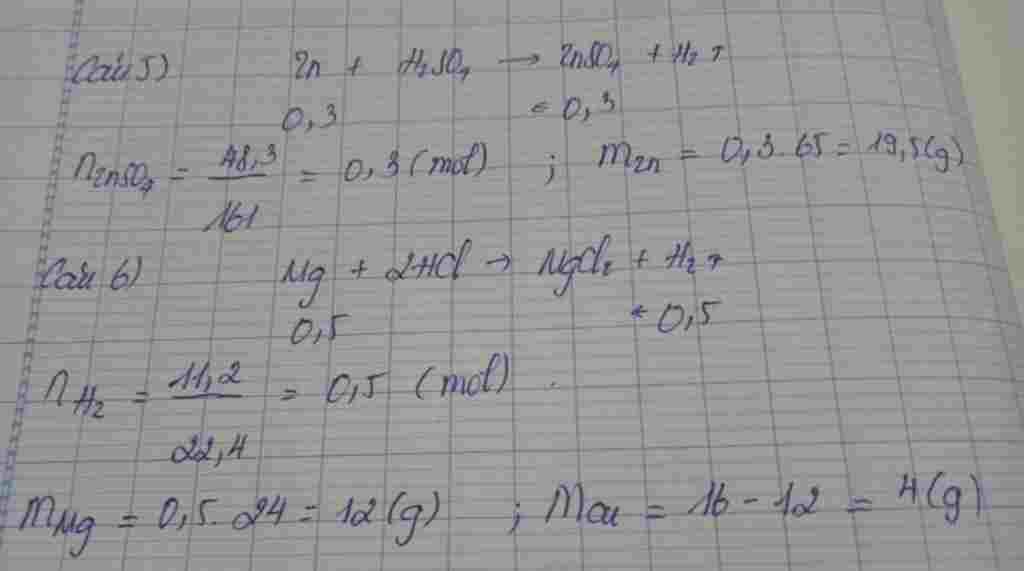 Câu 5) Zn + H₂SO₄ → ZnSO₄ + H₂ ↑
0,3 ← 0,3
nZnSO₄ = 48,3/161 = 0,3 (mol) ; mZn = 0,3 . 65 = 19,5 (g)
Câu 6) Mg + 2HCl → MgCl₂ + H₂ ↑
0,5 ← 0,5
nH₂ = 11,2/22,4 = 0,5 (mol)
mMg = 0,5 . 24 = 12 (g) ; mCu = 16 - 12 = 4 (g)